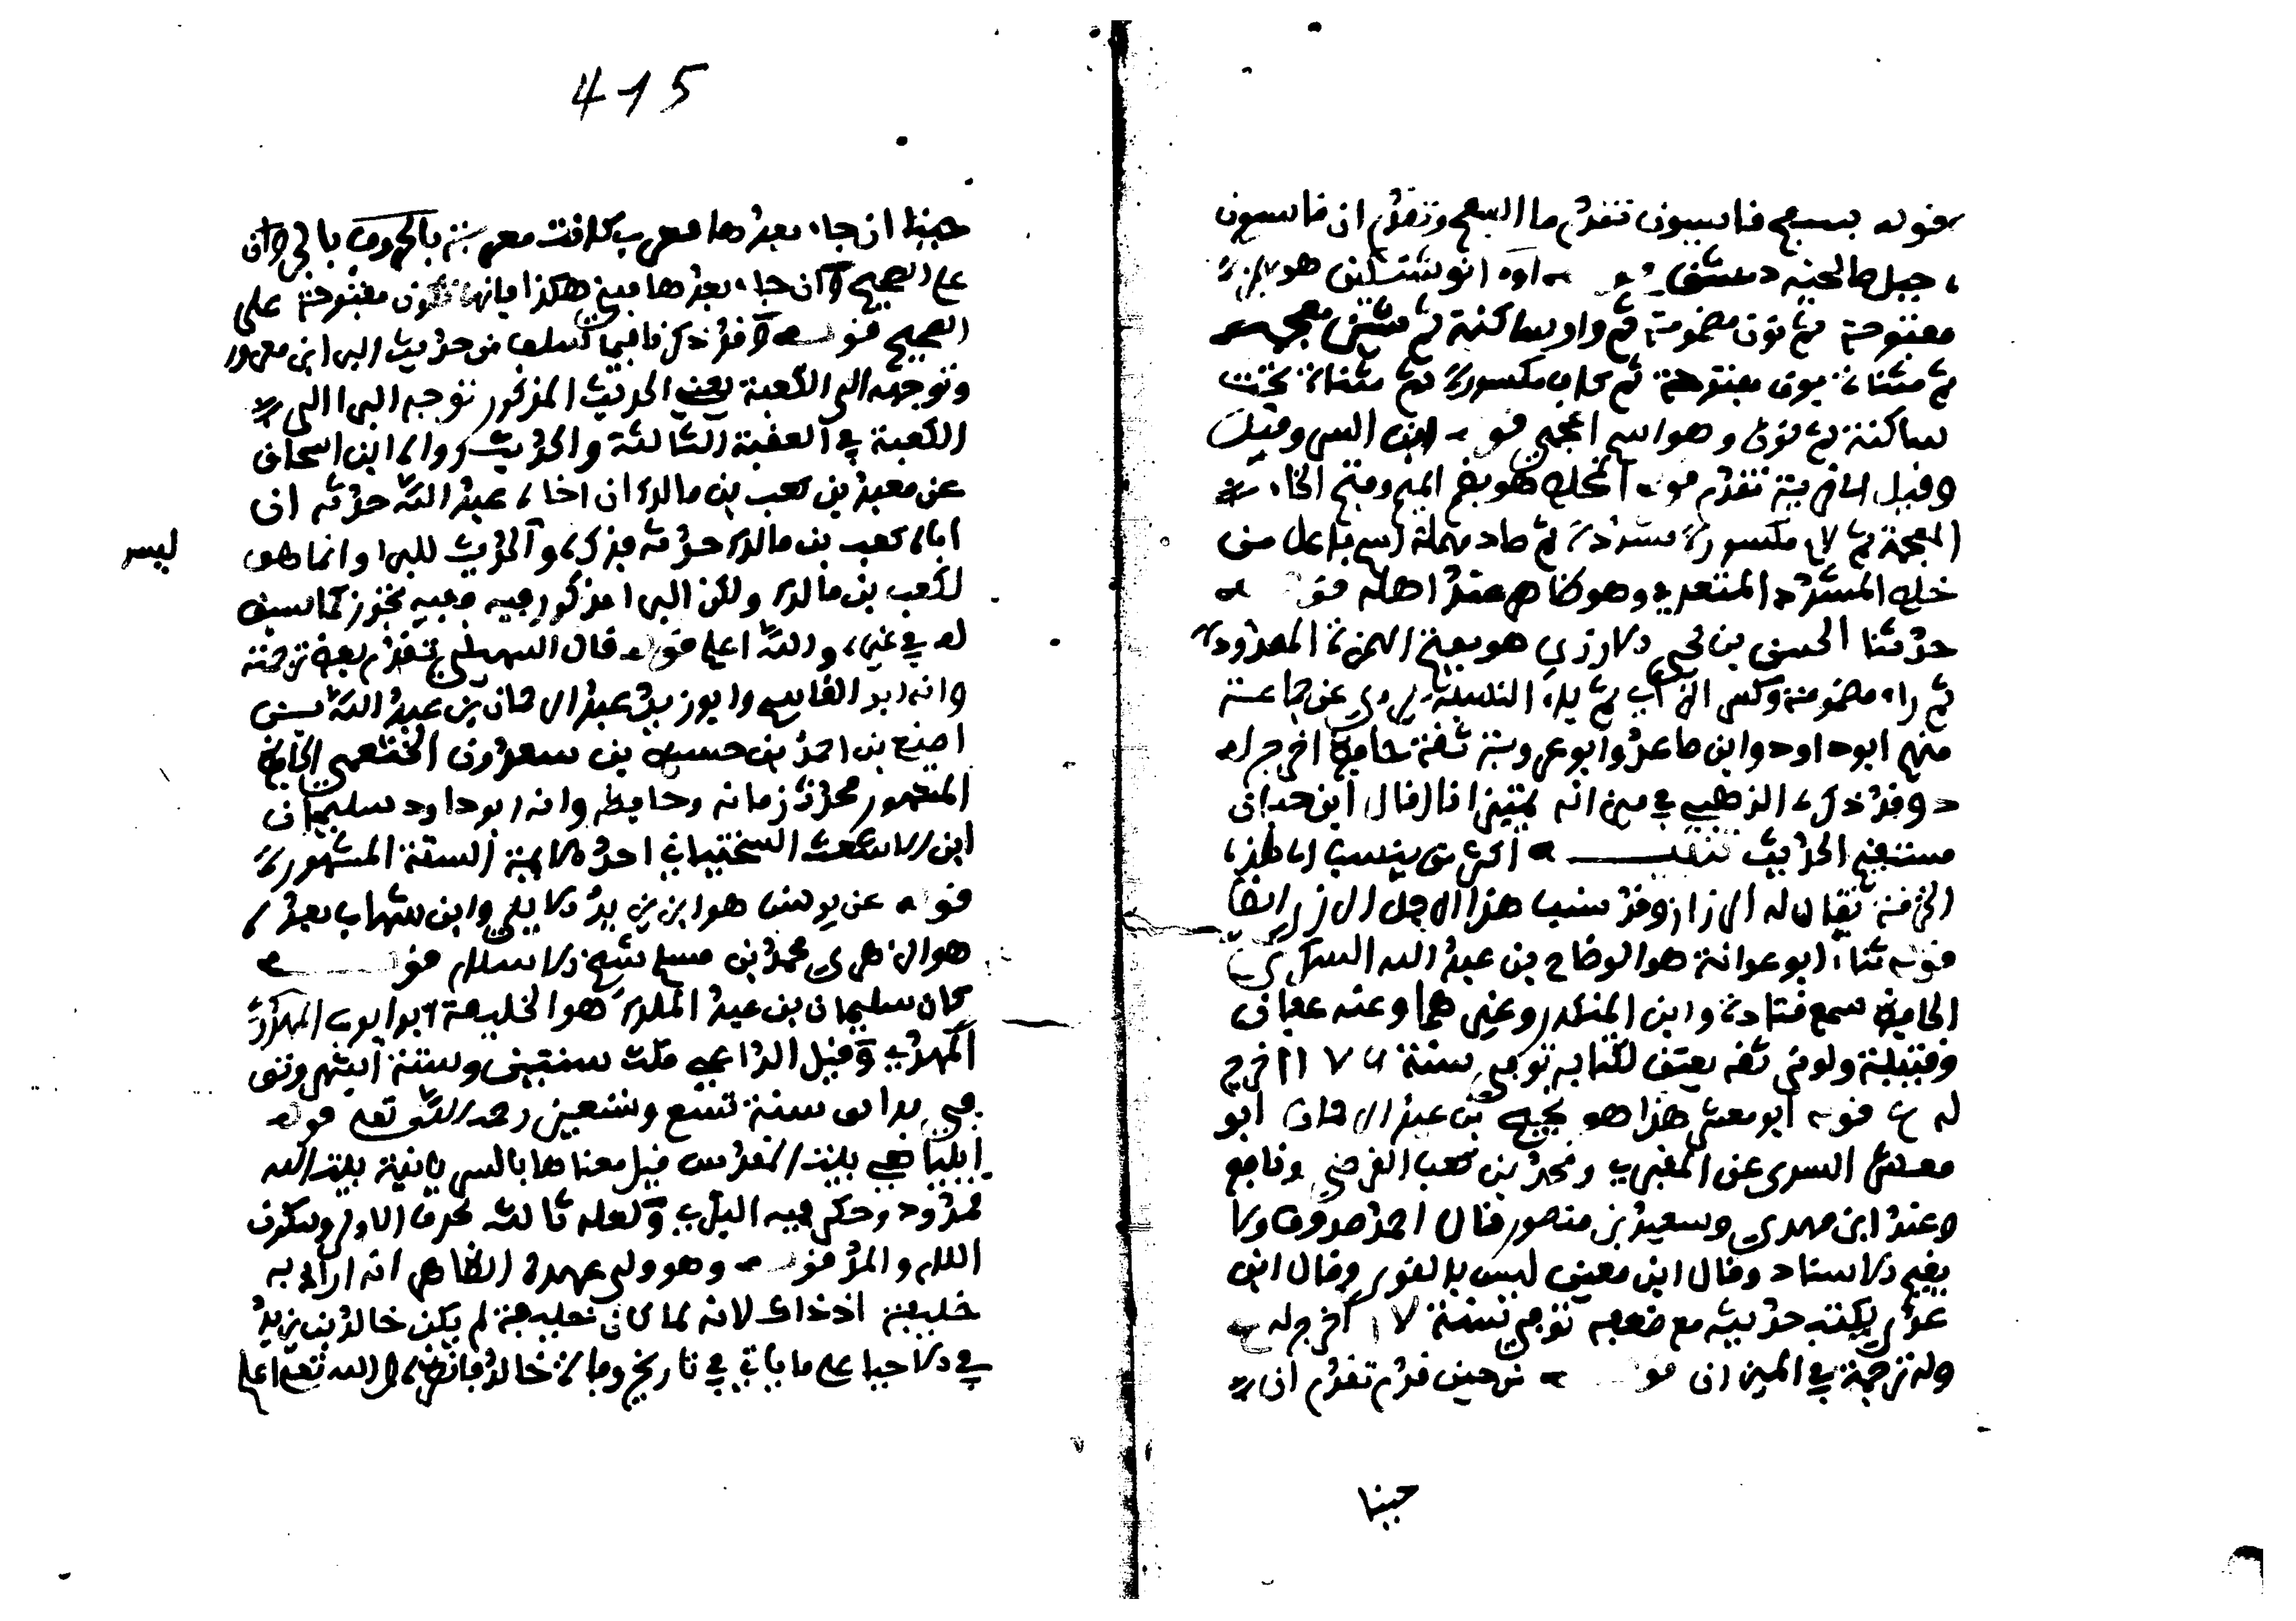 قوله بسبح قاسيون تقدم ما السبح وتقدم ان قاسيون
جبل صالحية دمشق قوله انوشتكين هو بهمزة
مفتوحة ثم نون مضمومة ثم واو ساكنة ثم شين معجمة
ثم مثناة فوق مفتوحة ثم كاف مكسورة ثم مثناة تحت
ساكنة ثم نون وهو اسم اعجمي قوله
تقدم قوله المخلص هو بضم الميم وفتح الخاء
المعجمة ثم لام مكسورة مشددة ثم صاد مهملة اسم فاعل من
خلص المشدد المتعدي وهو ظاهر عند اهله قوله
حدثنا الحسين بن يحيى الارزي هو بفتح الهمزة الممدودة
ثم راء مضمومة وكسر الزاي ثم ياء النسبة يروي عن جماعة
منهم ابو داود وابن صاعد وابو عروبة ثقة حافظ اخرج له
د وقد ذكره الذهبي في ميزانه تمييزا قال قال ابن حبان
مستقيم الحديث تنبيه اكثر من ينسب
يقال له الارزاز وقد نسب هذا الرجل الارزي ايضا
قوله ثنا ابو عوانة هو الوضاح بن عبد الله اليشكري
الحافظ سمع قتادة وابن المنكدر وغيرهما وعنه عفان
وقتيبة ولوين ثقة متقن لكتابه توفي سنة ١٧٦ اخرج
له ع قوله ابو معشر هذا هو نجيح بن عبد الرحمان ابو
معشر السندي عن المقبري ومحمد بن كعب القرظي ونافع
وعنه ابن مهدي وسعيد بن منصور قال احمد صدوق ولا
يقيم الاسناد وقال ابن معين ليس بالقوي وقال ابن
عدي يكتب حديثه مع ضعفه توفي سنة ١٧ اخرج له
وله ترجمة في الميزان قوله من حين قدم تقدم ان
حينا
415
حينا ان جاء بعدها معرب كانت معربة بالحروف
على الصحيح وان جاء بعدها مبني هكذا فانها تكون مفتوحة على
الصحيح قوله وقد ذكرنا فيما سلف من حديث البراء بن معرور
وتوجهه الى الكعبة يعني الحديث المذكور توجه البراء الى
الكعبة في العقبة الثالثة والحديث رواه ابن اسحاق
عن معبد بن كعب بن مالك ان اخاه عبد الله حدثه ان
اباه كعب بن مالك حدثه فذكره والحديث ليس للبراء وانما هو
لكعب بن مالك ولكن البراء مذكور فيه ففيه تجوز كما سبق
له في غيره والله اعلم قوله قال السهيلي تقدم بعض ترجمته
وانه ابو القاسم وابو زيد عبد الرحمان بن عبد الله بن
اصبغ بن احمد بن حسين بن سعدون الخثعمي الحافظ
المشهور محدث زمانه وحافظه وانه ابو داود سليمان
ابن الاشعث السختياني احد الايمة الستة المشهورة
قوله عن يونس هو ابن يزيد الايلي وابن شهاب بعده
هو الزهري محمد بن مسلم شيخ الاسلام قوله
كان سليمان بن عبد الملك هو الخليفة ابو ايوب
وقيل الداعي ملك سنتين وستة اشهر وتوفي
سنة تسع وتسعين رحمه الله تعلى قوله
ايلياء هي بيت المقدس قيل معناها بالسريانية بيت الله
ممدود وحكي فيه القصر ولغة ثالثة بحذف الاولى وسكون
اللام والمد قوله وهو ولي عهده الظاهر انه اراد به
خليفة اذ ذاك لانه لما كان خليفة لم يكن خالد بن يزيد
في الاحيا على ما ياتي في تاريخ وفاة خالد فانظره والله تعلى اعلم